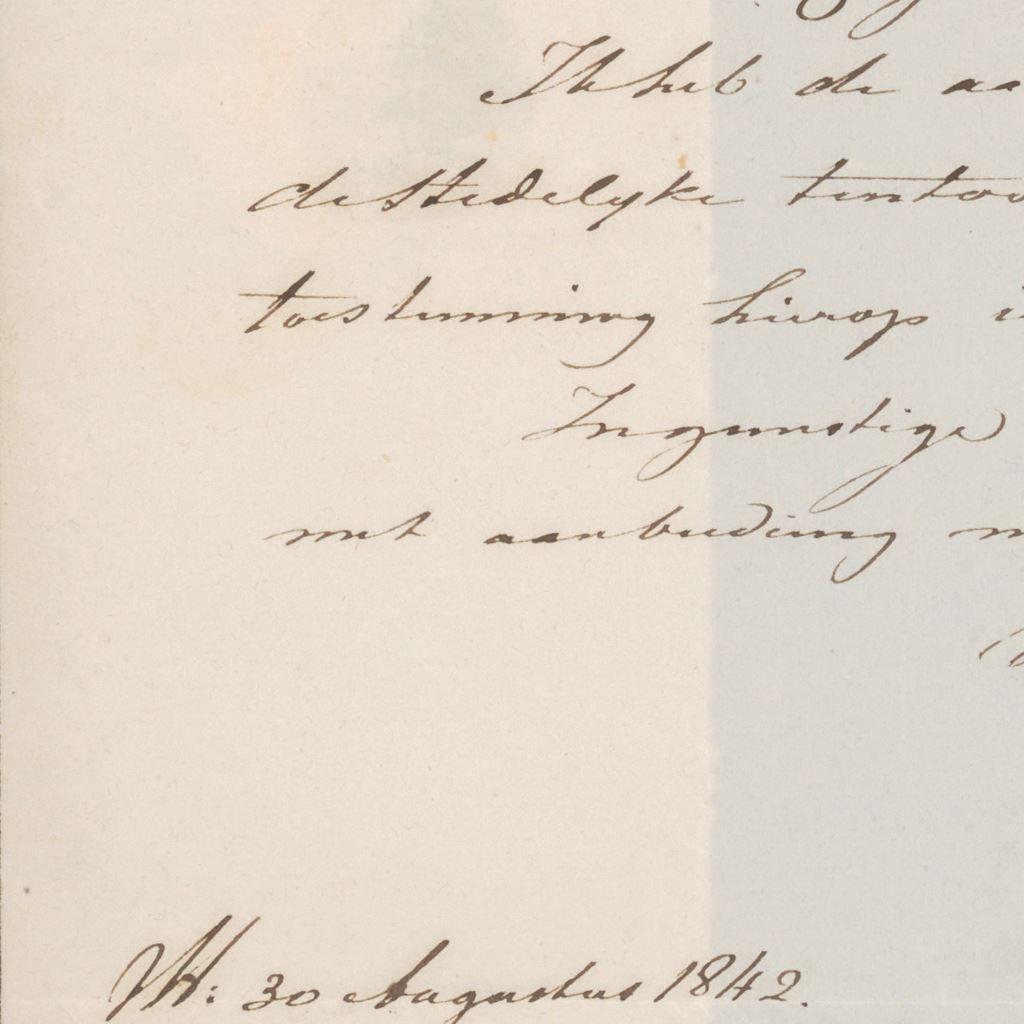 Ik heb de
de Stedelyke
toestemming hierop
In gunstige
met aanbieding
H: 30 Augustus 1842.